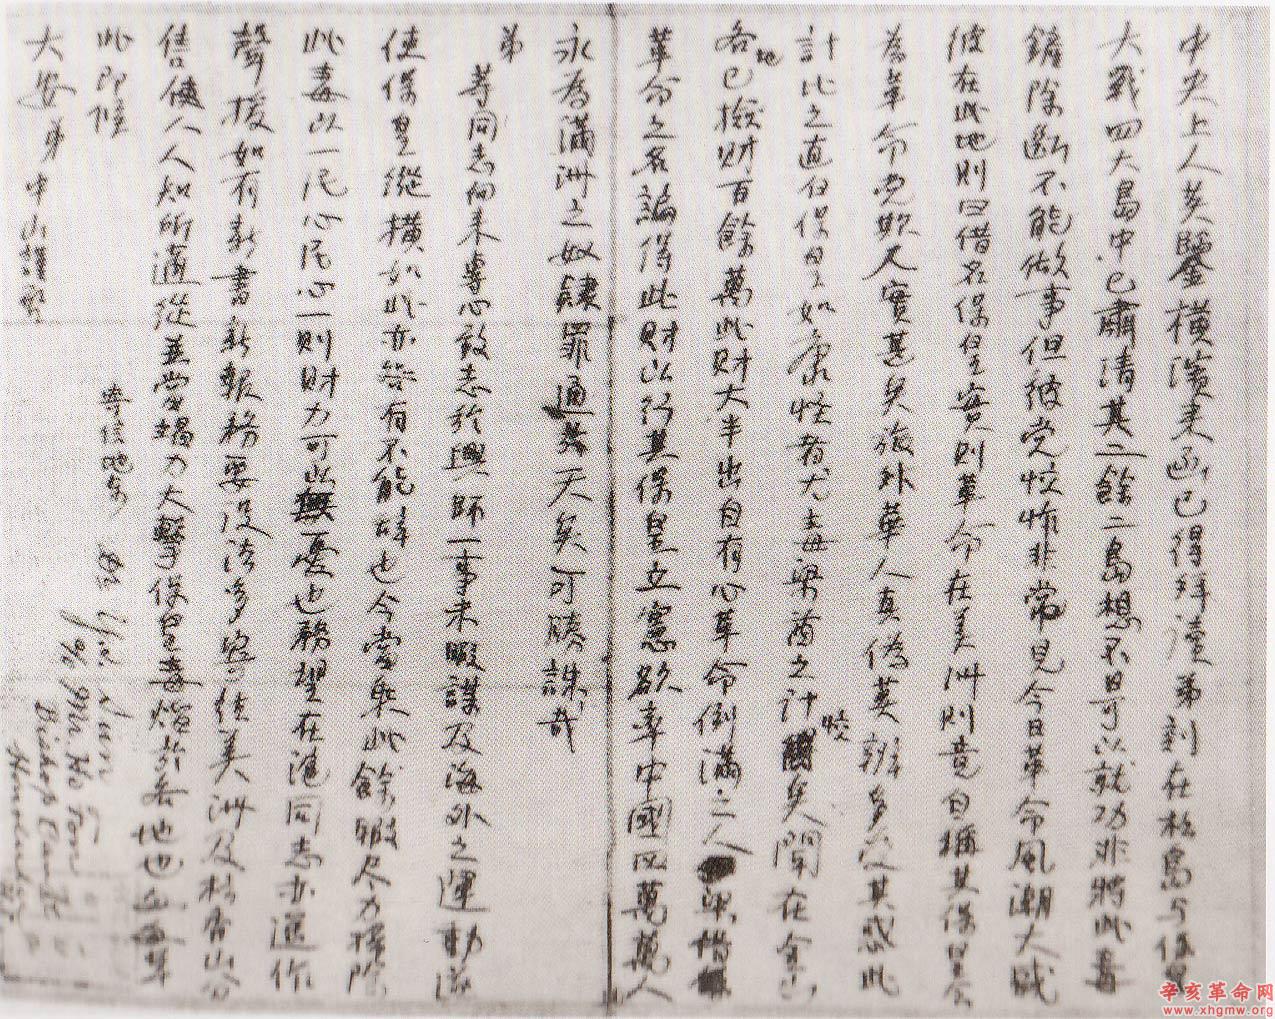 中央上人英鑒橫濱來函已得拜讀弟刻在檀島与保皇
大戰四大島中已肅清其二餘二島想不日可以就功非將此毒
鏟除斷不能做事但彼党狡詐非常見今日革命風潮大盛
彼在此地則曰借名保皇實則革命在美洲則竟自稱其保皇会
為革命党欺人實甚矣旅外華人真偽莫辨多受其惑此
計比之直白保皇如康怪者尤毒梁酋之計狡矣聞在金山
各地已斂財百餘萬此財大半出自有心革命倒滿之人梁借
革命之名騙得此財以行其保皇立憲欲率中國四萬萬人
永為滿洲之奴隸罪通於天矣可勝誅哉
弟
等同志向來專心致志於興師一事未暇謀及海外之運動遂
使保皇縱橫如此亦咎有不能辭也今當乘此餘暇尽力掃除
此毒以一民心民心一則財力可以無憂也務望在滬同志亦遙作
聲援如有新書新報務要設法多寄往美洲及檀香山分
售使人人知所適從並當竭力大擊保皇毒焰於各地也匆匆草
此即候
大安 弟中山謹啓
寄信地方
Dr Y.S. Sun
% Mr. Ho Fon
Bishop Bank
Honolulu
辛亥革命网
www.xhgmw.org